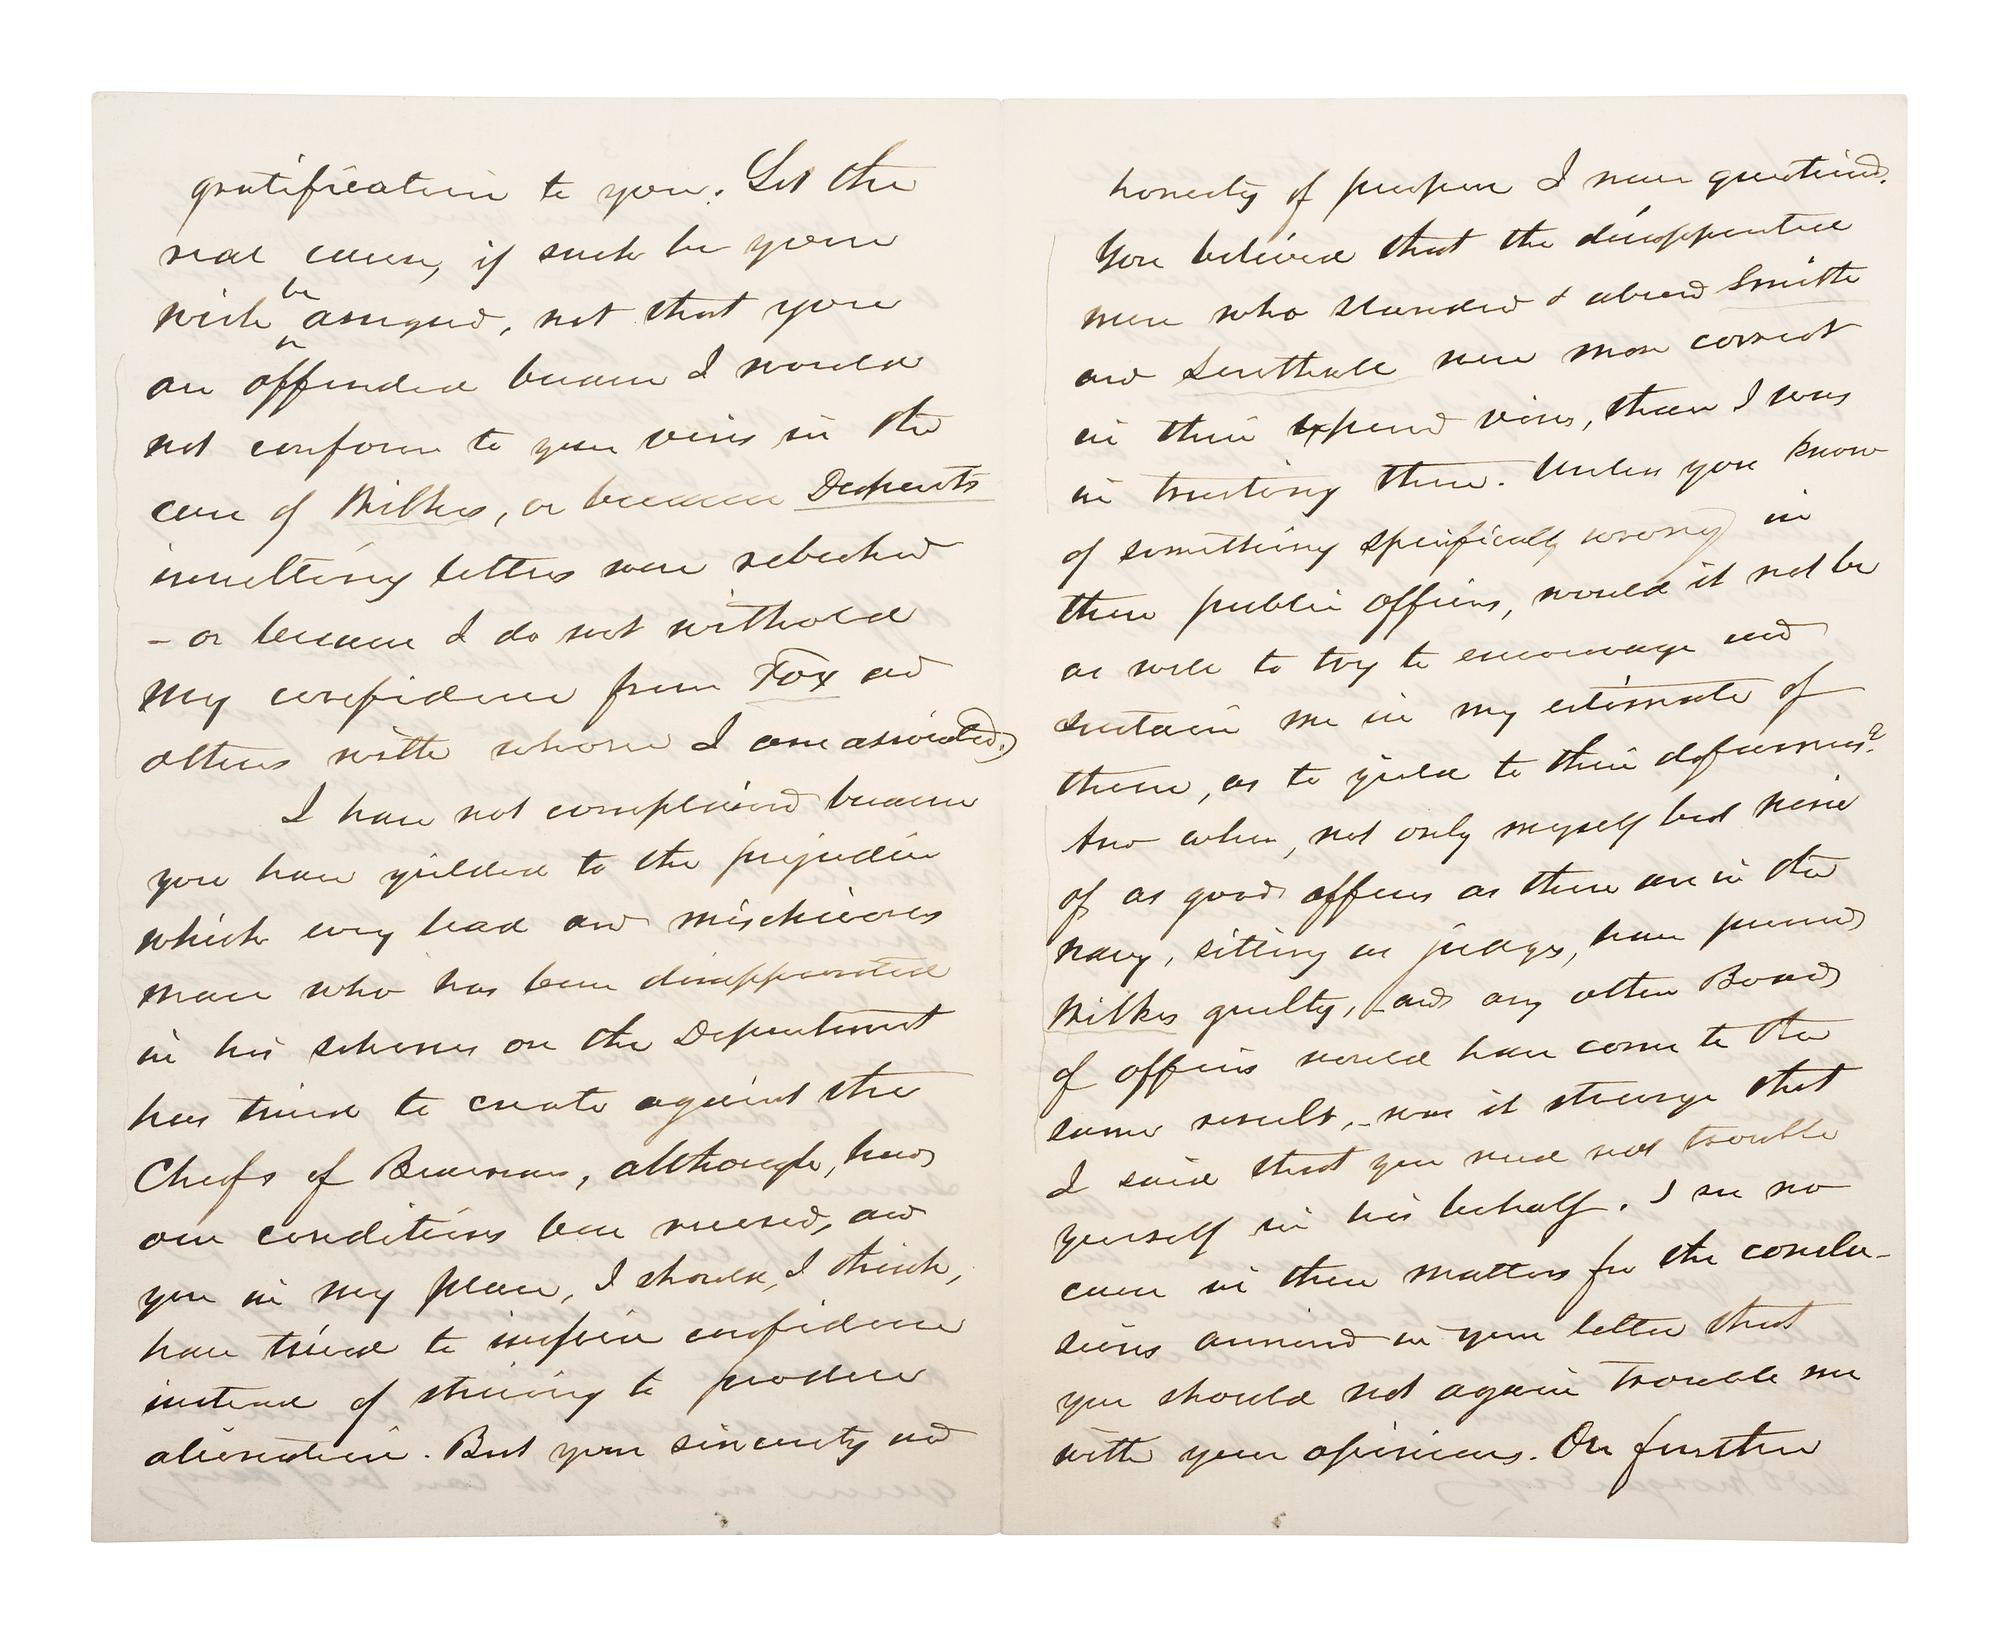 gratification to you. Let the
real cause, if such be your
wish be assigned, not that you
are offended because I would
not conform to your views in the
case of Wilkes, or because Duponts
insulting letters were rebuked
– or because I do not withold
my confidence from Fox and
others with whom I am associated.
I have not complained because
you have yielded to the prejudice
which every bad and mischievous
man who has been disappointed
in his schemes on the Department
has tried to create against the
Chiefs of Bureaus, although, had
our conditions been reversed, and
you in my place, I should, I think,
have tried to inspire confidence
instead of striving to produce
alienation. But your sincerity and
honesty of purpose I never questioned.
You believed that the disappointed
men who slandered & abused Smith
and Lenthall were more correct
in their views, than I was
in trusting them. Unless you know
of something specifically wrong in
these public officers, would it not be
as well to try to encourage and
sustain me in my estimate of
them, as to yield to their defamers?
And when, not only myself but nine
of as good officers as there are in the
navy, sitting as judges, have found
Wilkes guilty, and any other Board
of officers would have come to the
same result, was it strange that
I said that you need not trouble
yourself in his behalf. I see no
cause in these matters for the conclu-
sions announced in your letter that
you should not again trouble me
with your opinions. On further